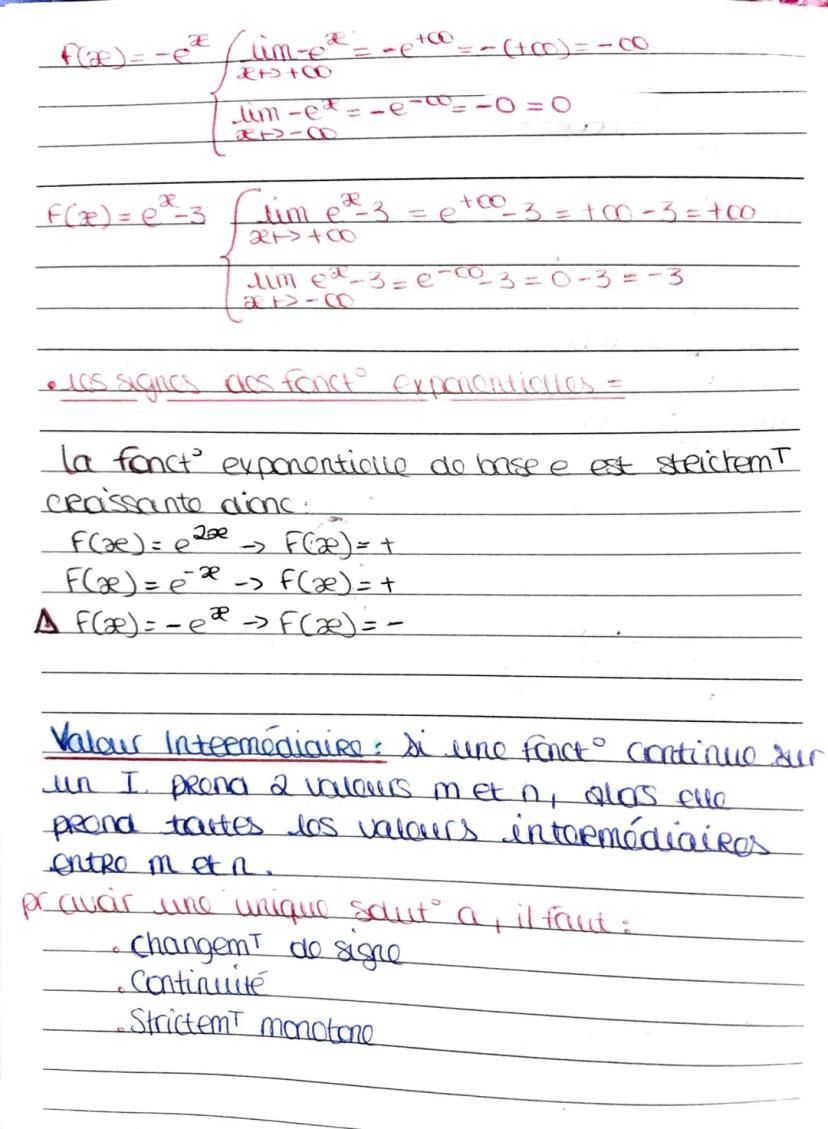 f(x) = -e^x { lim -e^x = -e^{+∞} = -(+∞) = -∞
x↦+∞
lim -e^x = -e^{-∞} = -0 = 0
x↦-∞
f(x) = e^x-3 { lim e^x-3 = e^{+∞}-3 = +∞-3 = +∞
x↦+∞
lim e^x-3 = e^{-∞}-3 = 0-3 = -3
x↦-∞
• les signes des fonct° exponentielles =
la fonct° exponentielle de base e est strictemT
croissante donc :
f(x) = e^{2x} → f(x) = +
f(x) = e^{-x} → f(x) = +
⚠ f(x) = -e^x → f(x) = -
Valeur Intermédiaire : Si une fonct° continue sur
un I. prend 2 valeurs m et n, alors elle
prend toutes les valeurs intermédiaires
entre m et n.
pr avoir une unique solut° a, il faut :
. changemT de signe
. Continuité
. StrictemT monotone